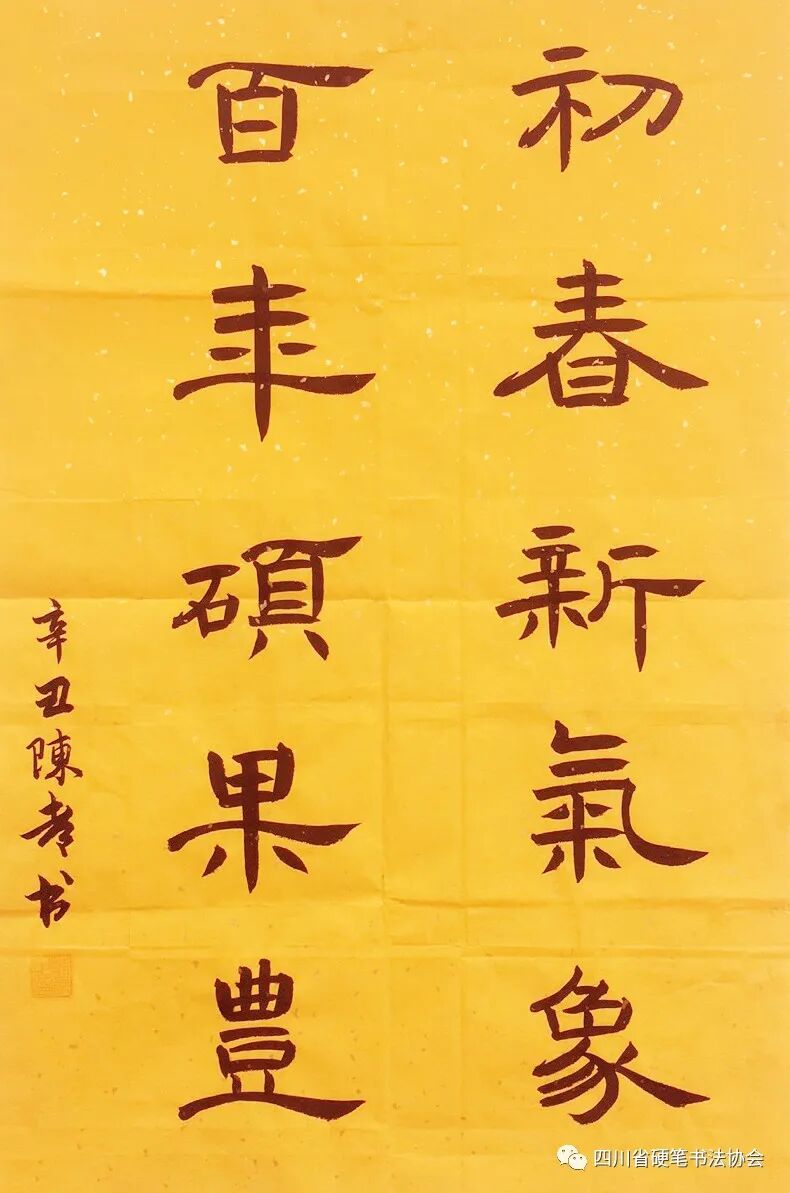 初春新氣象
百年碩果豊
辛丑陳孝书
四川省硬笔书法协会